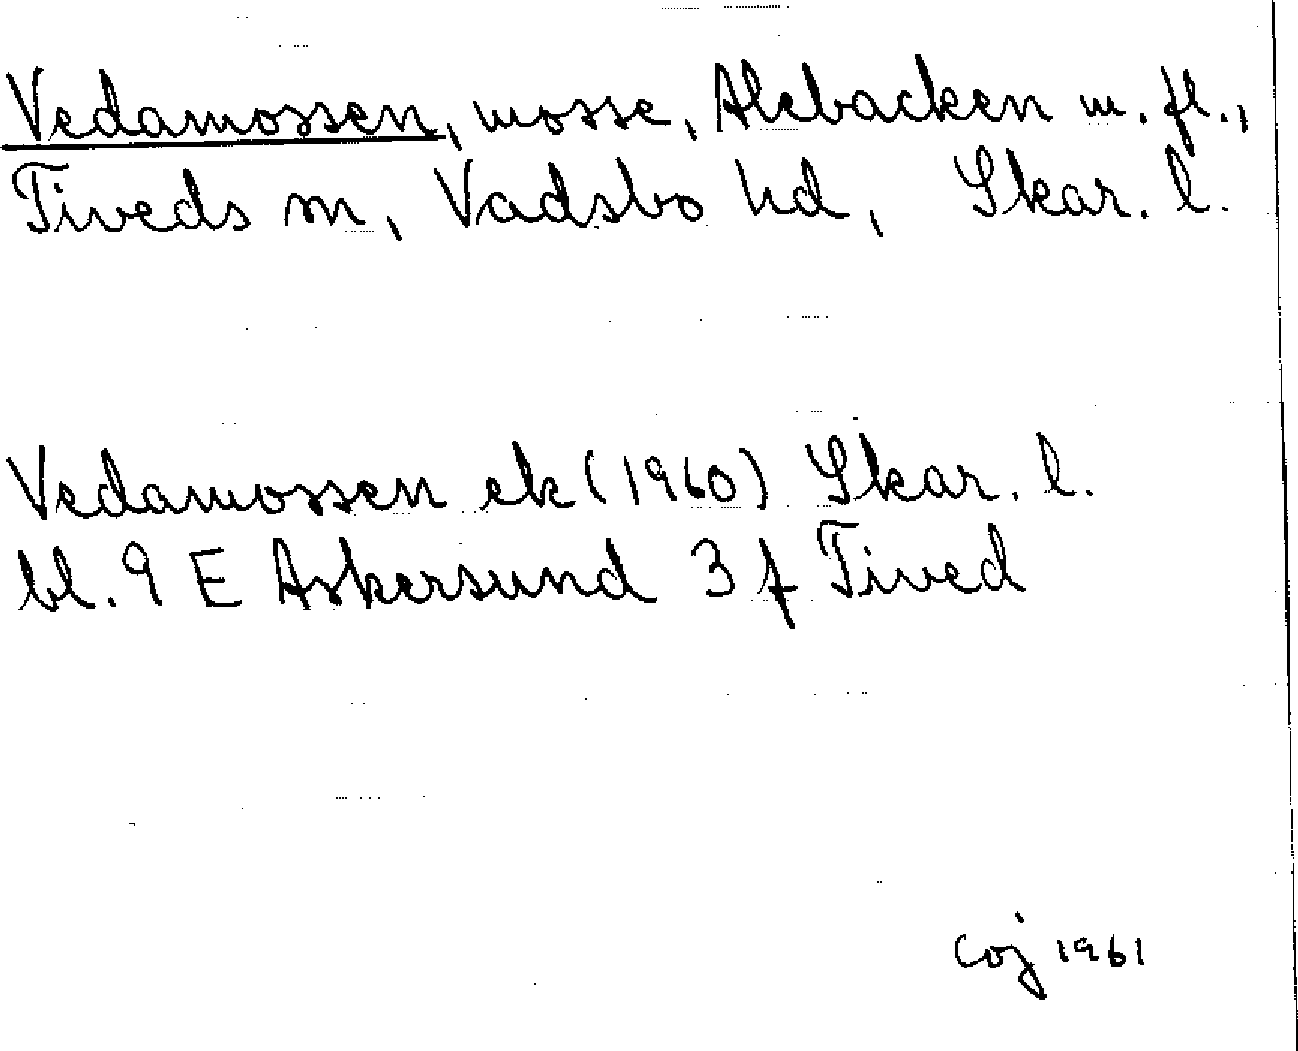 Vedamossen, mosse, Alebacken m. fl.,
Tiveds sn, Vadsbo hd, Skar. l.
Vedamossen ek (1960) Skar. l.
bl. 9 E Askersund 3 f Tived
Coj 1961